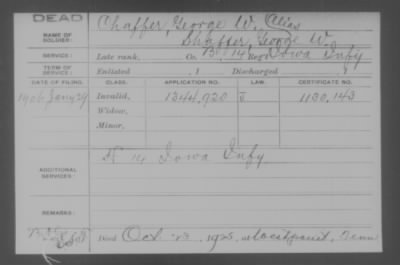 DEAD
NAME OF SOLDIER: Chaffer, George W. Alias
Shaffer, George W.
SERVICE: Late rank, Co. 14 Reg't Iowa Infy
TERM OF SERVICE: Enlisted , 1 Discharged , 1
DATE OF FILING. CLASS. APPLICATION NO. LAW. CERTIFICATE NO.
1906 Jany 29 Invalid, 1344,920 1130,143
Widow,
Minor,
ADDITIONAL SERVICES: 14 Iowa Infy
REMARKS:
Died Oct. 23, 1925, at Tenn